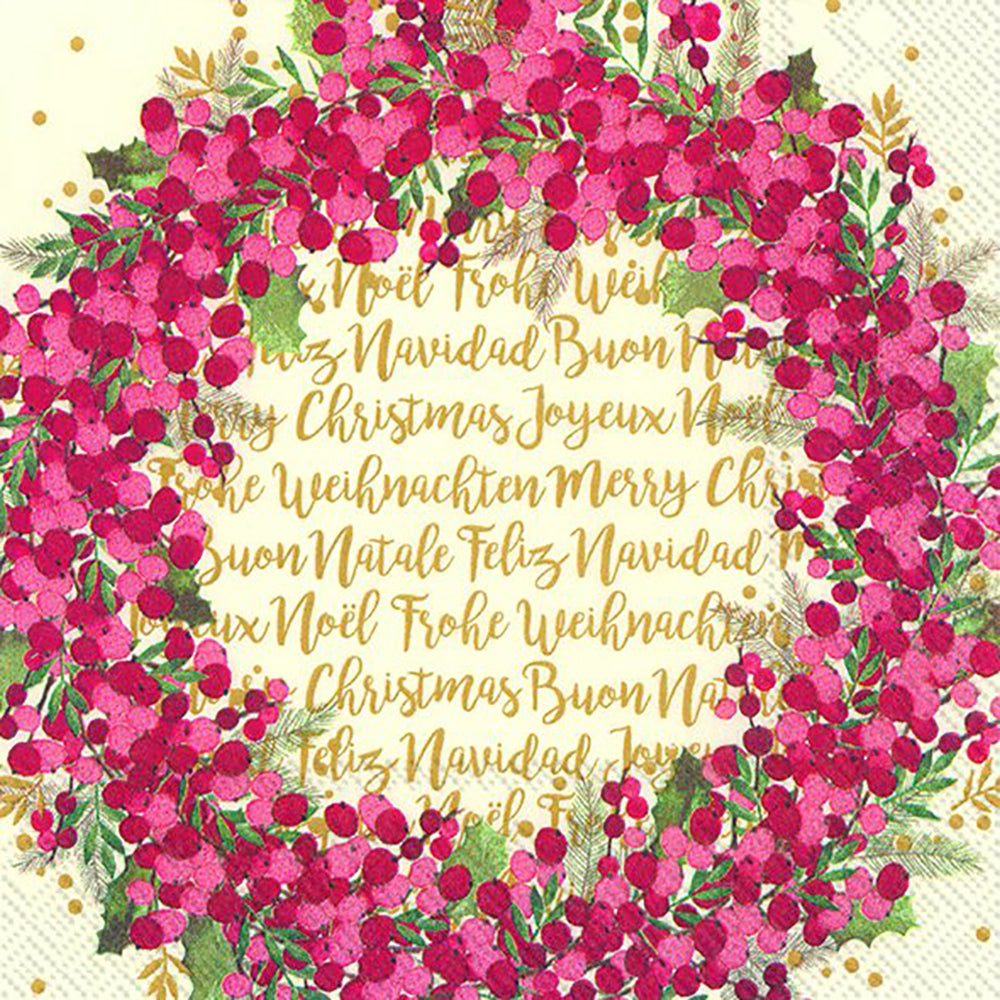 Noël Frohe Weih
Feliz Navidad Buon Nata
Merry Christmas Joyeux Noël
Frohe Weihnachten Merry Chris
Buon Natale Feliz Navidad M
Joyeux Noël Frohe Weihnachten
Christmas Buon Nat
Feliz Navidad Joyeu
Noël Fr